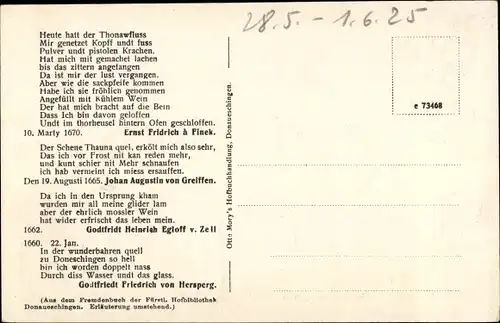 28.5. - 1.6.25
Heute hatt der Thonawfluss
Mir genetzet Kopff undt fuss
Pulver undt pistolen Krachen.
Hat mich mit gemachet lachen
bis das zittern angefangen
Da ist mir der lust vergangen.
Aber wie die sackpfeife kommen
Habe ich sie fröhlich genommen
Angefüllt mit Kühlem Wein
Der hat mich bracht auf die Bein
Dass Ich bin davon geloffen
Undt im thorheusel hintern Ofen geschloffen.
10. Marty 1670. Ernst Fridrich à Finek.
Der Schene Thauna quel, erkölt mich also sehr,
Das ich vor Frost nit kan reden mehr,
und kunt schier nit Mehr schnaufen
ich hab vermeint ich miess ersauffen.
Den 19. Augusti 1665. Johan Augustin von Greiffen.
Da ich in den Ursprung kham
wurden mir all meine glider lam
aber der ehrlich mossler Wein
hat wider erfrischt das leben mein.
1662. Godtfridt Heinrich Egloff v. Zell
1660. 22. Jan.
In der wunderbahren quell
zu Doneschingen so hell
bin ich worden doppelt nass
Durch diss Wasser undt das glass.
Godtfriedt Friedrich von Hersperg.
(Aus dem Fremdenbuch der Fürstl. Hofbibliothek
Donaueschingen. Erläuterung umstehend.)
Otto Mory's Hofbuchhandlung, Donaueschingen.
e 73468